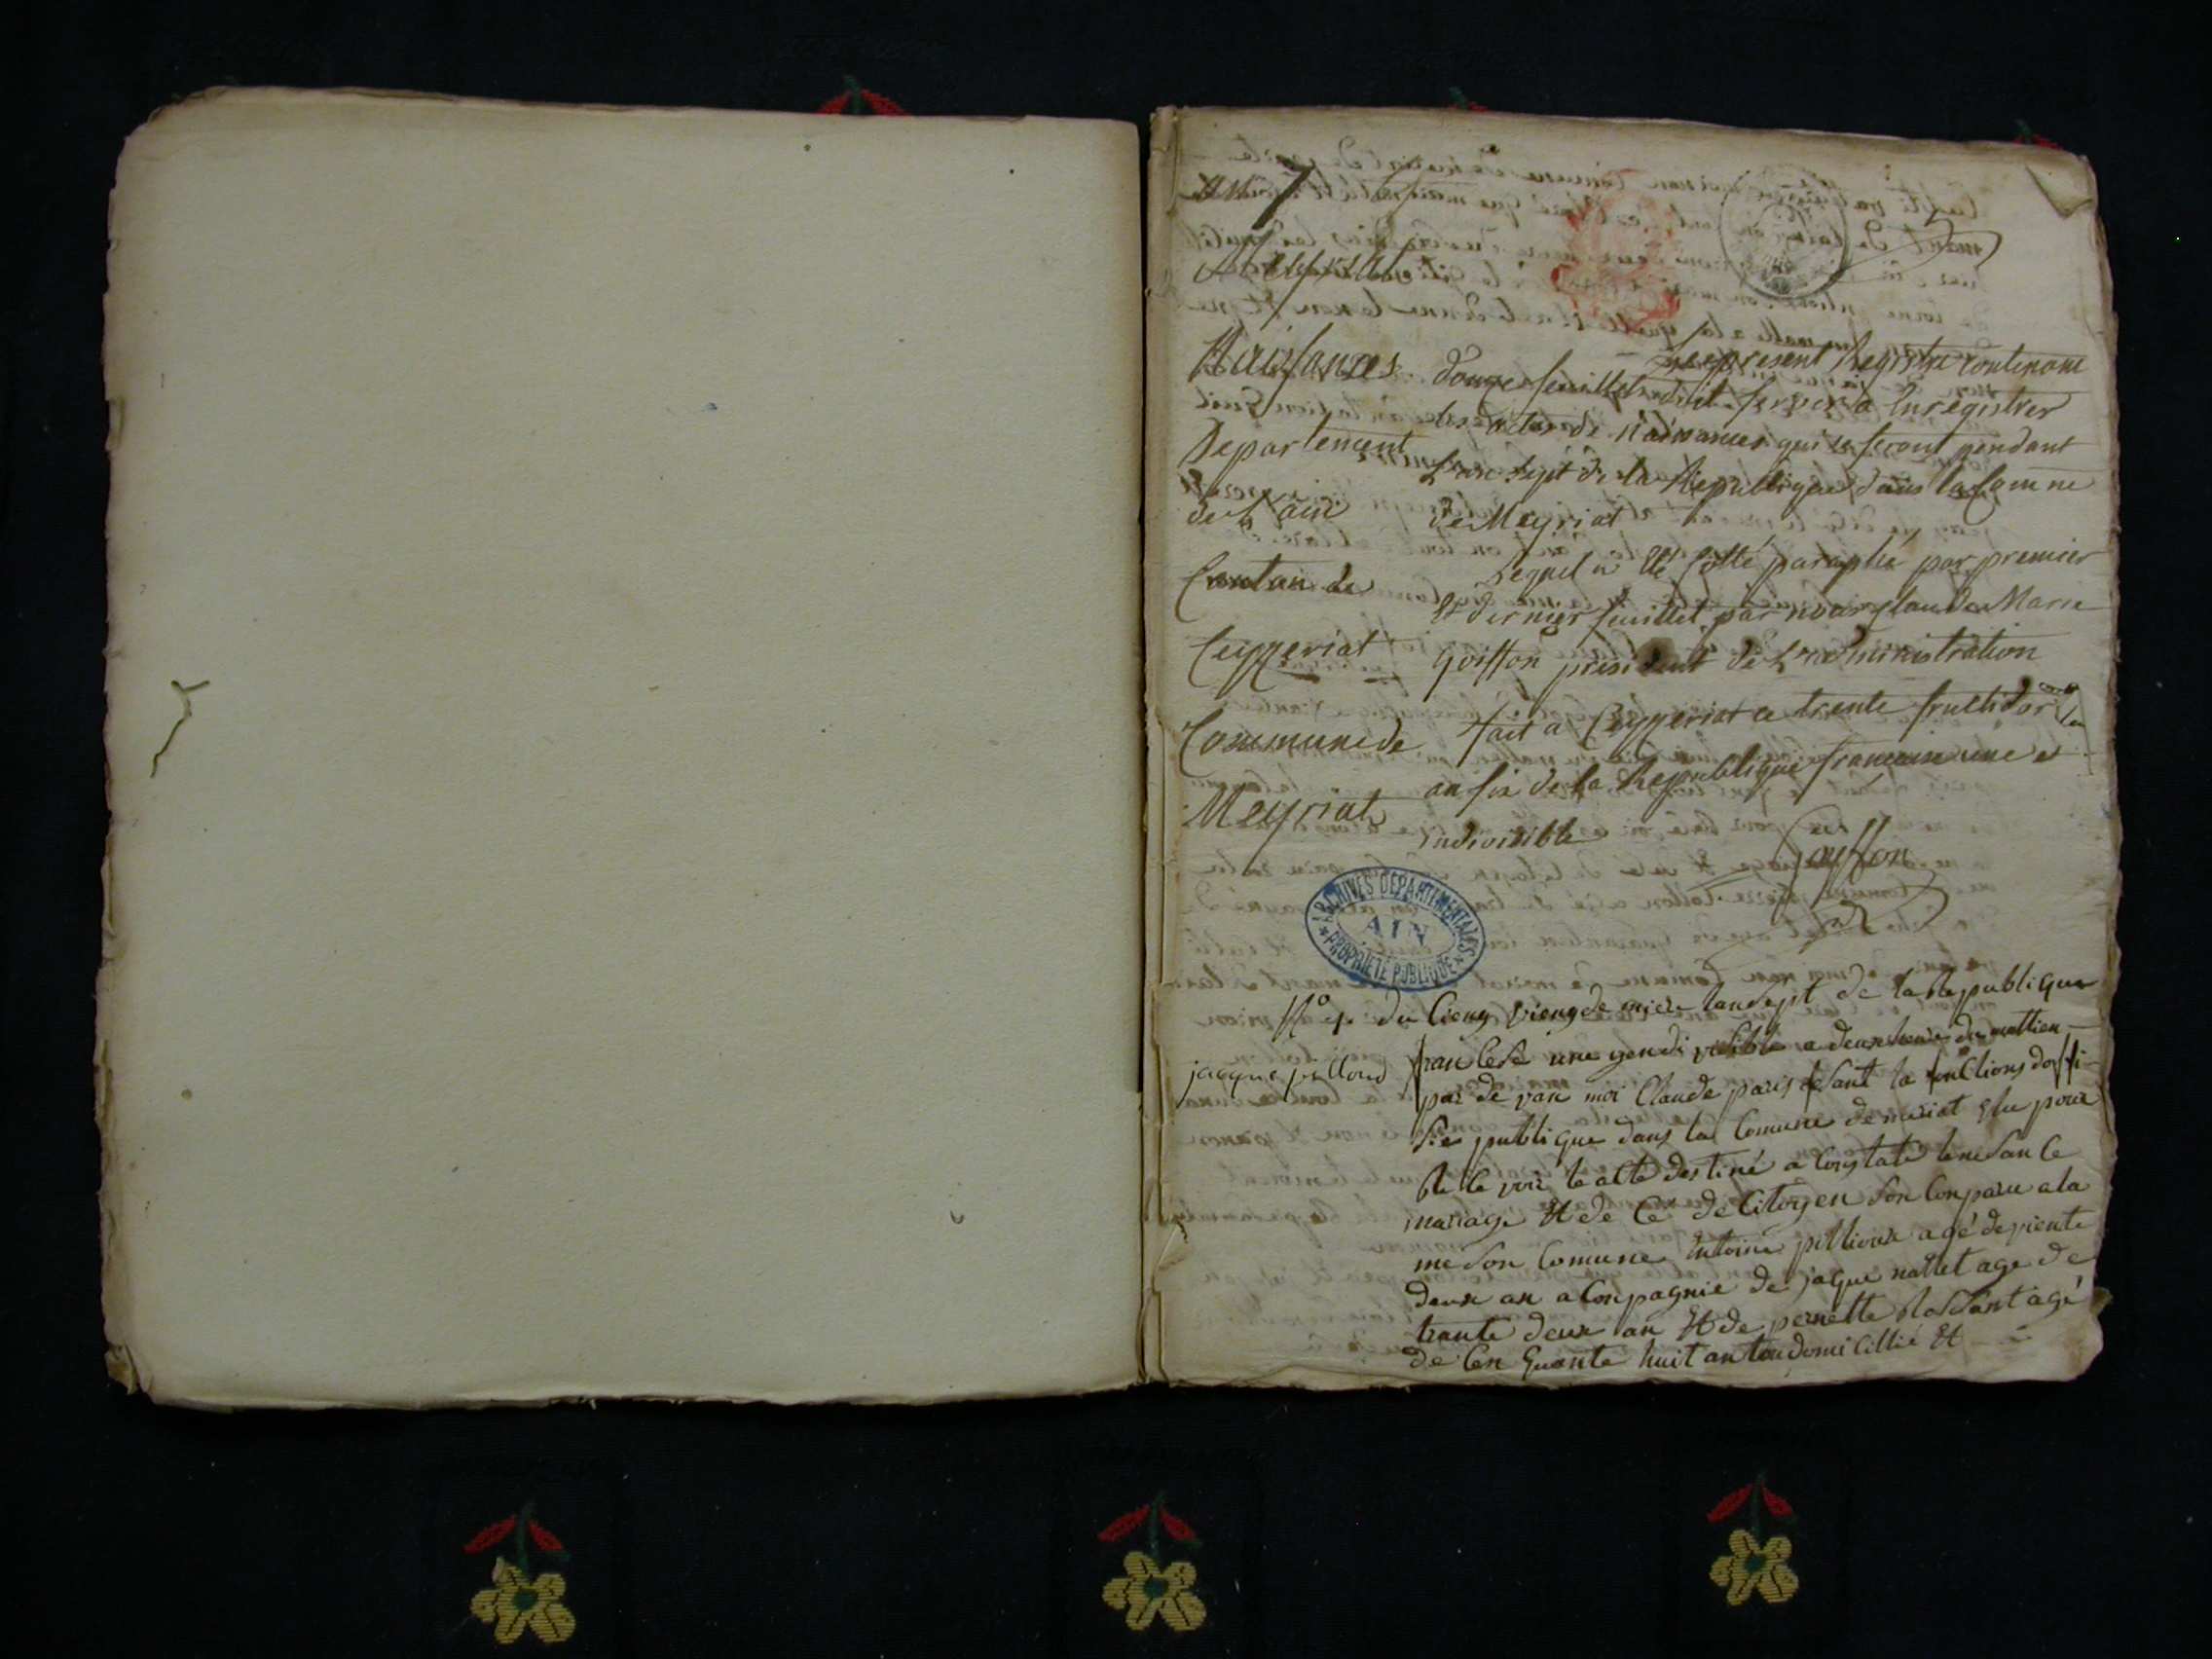 an 7
Naissances
Departement
de L'ain
Canton de
Ceyzeriat
Commune de
Meyriat
Le present Registre contenant
douze feuillets doit servir a Enregistrer
les actes de Naissances qui se feront pendant
L'an Sept de la Republique dans la Comune
de Meyriat
Lequel a été Cotté paraphé par premier
Et dernier feuillet par nous Claude Marie
Goiffon président de L'administration
fait a Ceyzeriat ce trente fructidor
an six de la Republique francaise une et
indivisible
Goyffon
ARCHIVES DEPARTEMENTALES
AIN
PROPRIÉTÉ PUBLIQUE
jaque pilloud
du Cieng viengdemiere lan sept de la Republique
francese une yendi visible a deux heure du mattien
par de van moi Claude paris fesant la fonctions doffi-
sie publique dans la Comune de meriat Elu pour
Re ce voir le acte destiné a Constaté lenesance
mariage Et de Ce de Citoyen son Conparu a la
meson Comune Entoine pillioux agé de viente
deux an a Conpagnie de jaque nallet age de
trante deux an Et de pernette Rassant agé
de Cen quante huit an tou domi Cillié Et